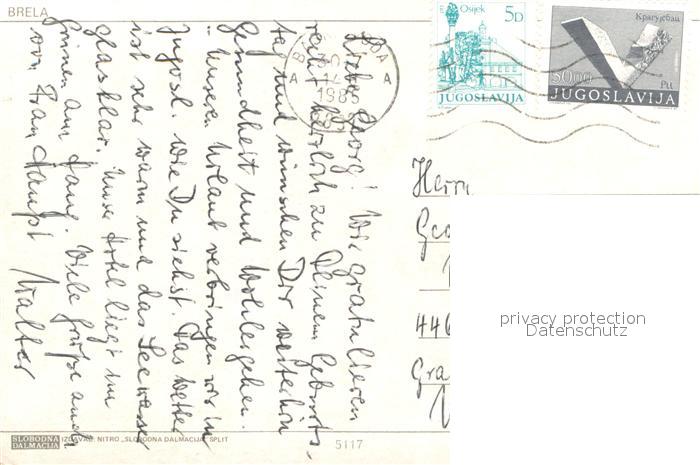 BRELA
Lieber Georg! Wir gratulieren
recht herzlich zu Deinem Geburts-
tag und wünschen Dir weiterhin
Gesundheit und Wohlergehen.
Unseren Urlaub verbringen wir in
Jugosl. wie Du siehst. Das Wetter
ist sehr warm und das Seewasser
glasklar. Unser Hotel liegt im
Grünen am Hang. Viele Grüße auch
von Frau
Walter
A A
1985
Osijek
5D
JUGOSLAVIJA
Крагујевац
50.00
JUGOSLAVIJA
Herrn
Geo
446
Gra
privacy protection
Datenschutz
SLOBODNA
DALMACIJA
IZDAVAČ: NITRO „SLOBODNA DALMACIJA" SPLIT
5117